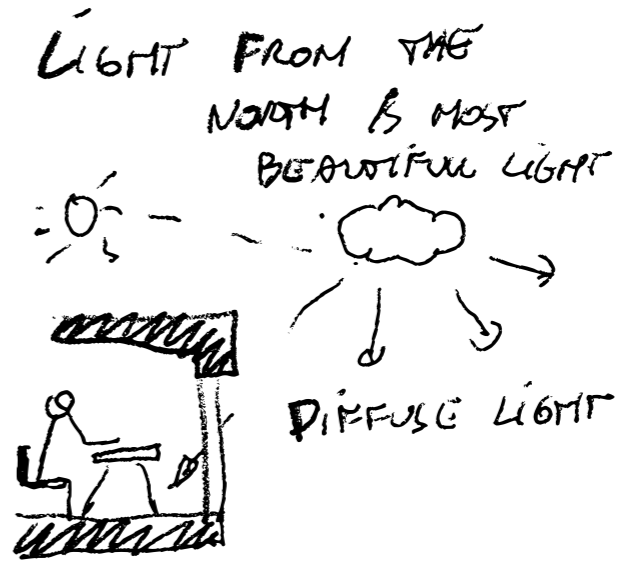 LIGHT FROM THE
NORTH IS MOST
BEAUTIFUL LIGHT
DIFFUSE LIGHT